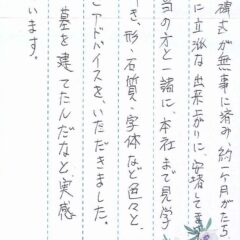 碑式が無事に済み約一ヶ月がたち
に立派な出来上りに安堵してます
当の方と一緒に、本社まで見学
き、形、石質、字体など色々と
アドバイスを、いただきました。
墓を建てたんだなと、実感
います。